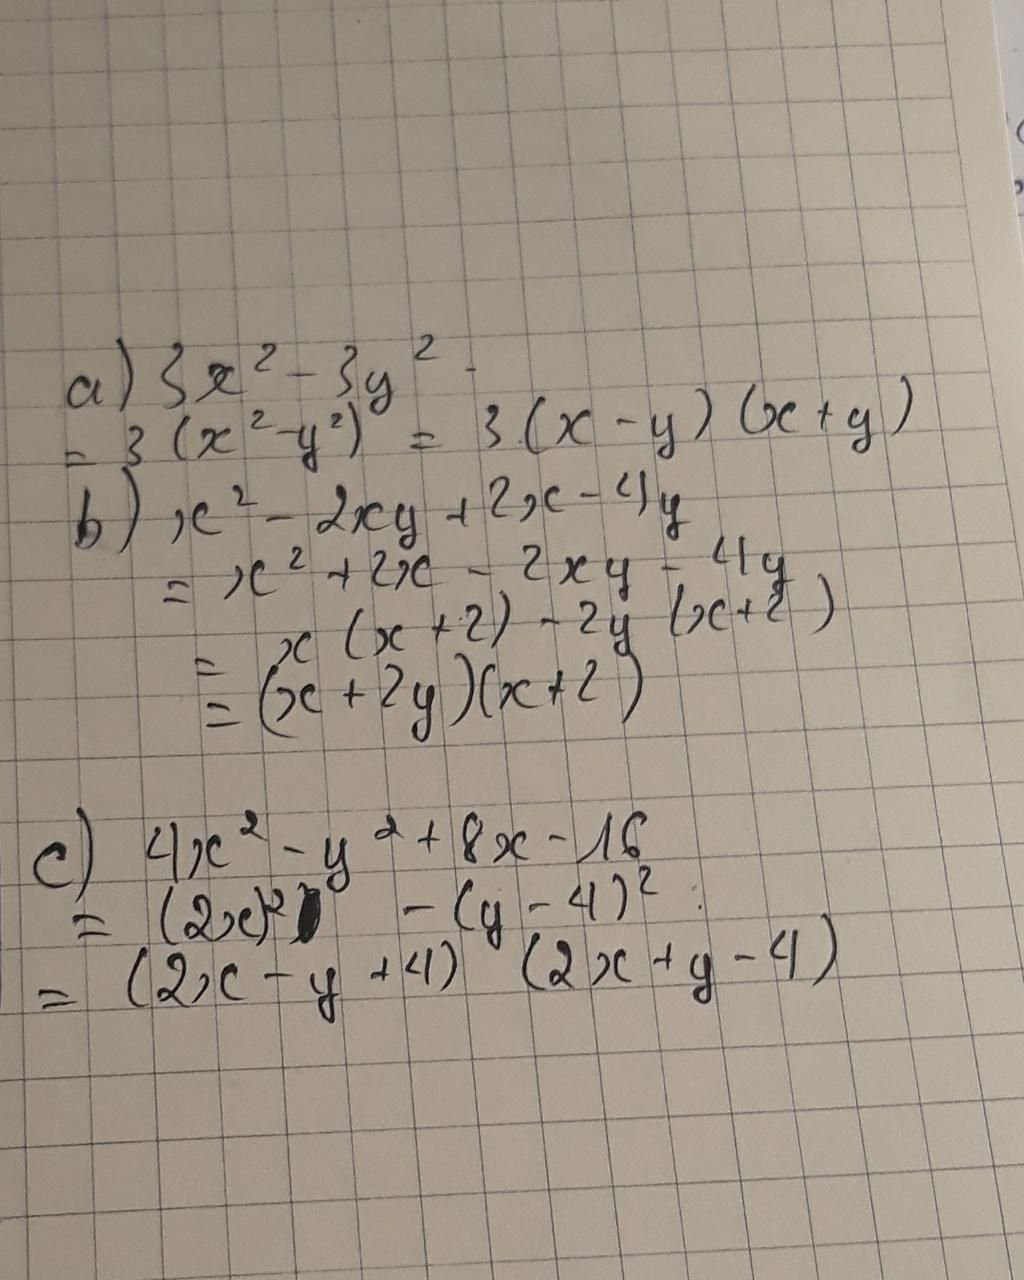 a) 3x² - 3y²
= 3(x² - y²) = 3(x - y)(x + y)
b) x² - 2xy + 2x - 4y
= x² + 2x - 2xy - 4y
= x(x + 2) - 2y(x + 2)
= (x + 2y)(x + 2)
c) 4x² - y² + 8x - 16
= (2x)² - (y - 4)²
= (2x - y + 4)(2x + y - 4)